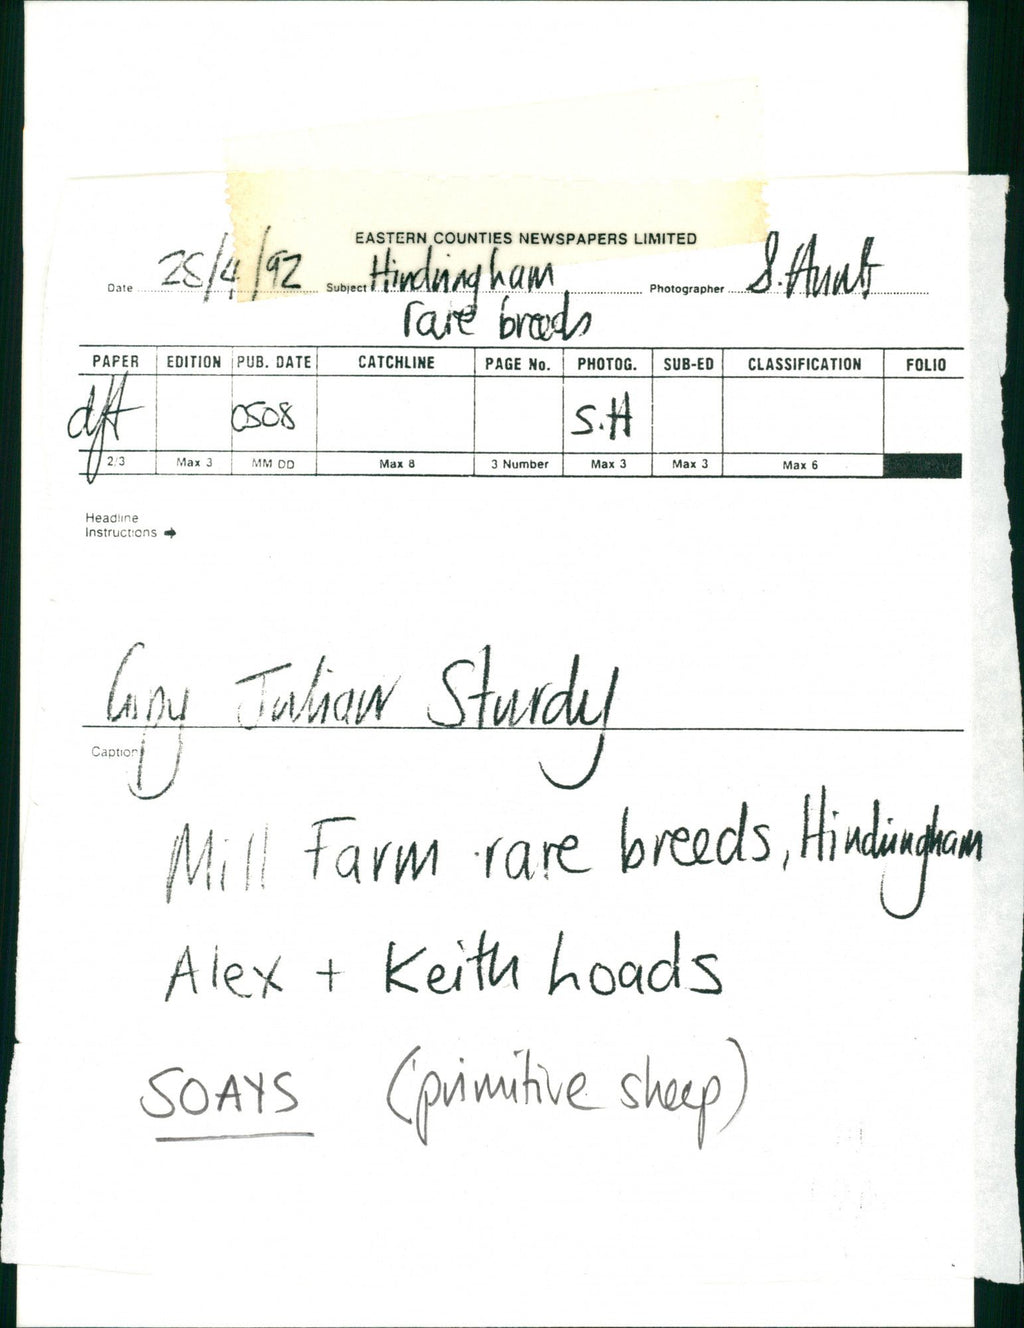 EASTERN COUNTIES NEWSPAPERS LIMITED
Date 28/4/92 Subject Hindringham Photographer S. Hunt
rare breeds
PAPER EDITION PUB. DATE CATCHLINE PAGE No. PHOTOG. SUB-ED CLASSIFICATION FOLIO
dft 0508 S.H
2/3 Max 3 MM DD Max 8 3 Number Max 3 Max 3 Max 6
Headline
Instructions ➔
Copy Julian Sturdy
Caption
Mill Farm rare breeds, Hindringham
Alex + Keith Loads
SOAYS (primitive sheep)